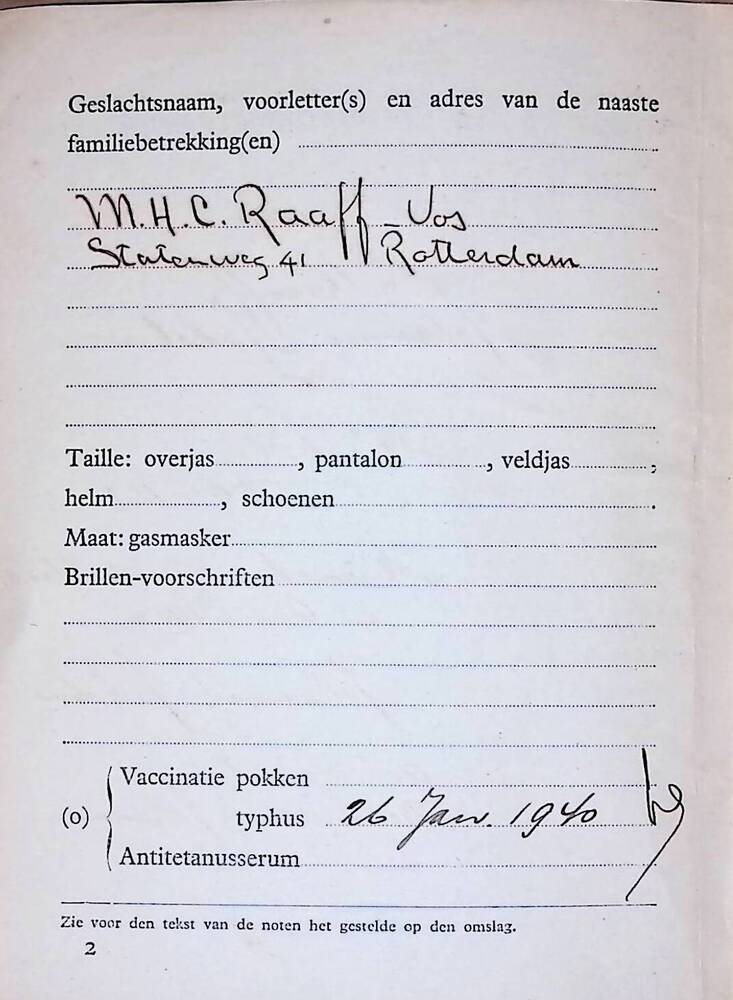 Geslachtsnaam, voorletter(s) en adres van de naaste
familiebetrekking(en)
M.H.C. Raaff - Vos
Statenweg 41 Rotterdam
Taille: overjas , pantalon , veldjas ;
helm , schoenen .
Maat: gasmasker
Brillen-voorschriften
Vaccinatie pokken
(o) typhus 26 Jan. 1940
Antitetanusserum
Zie voor den tekst van de noten het gestelde op den omslag.
2